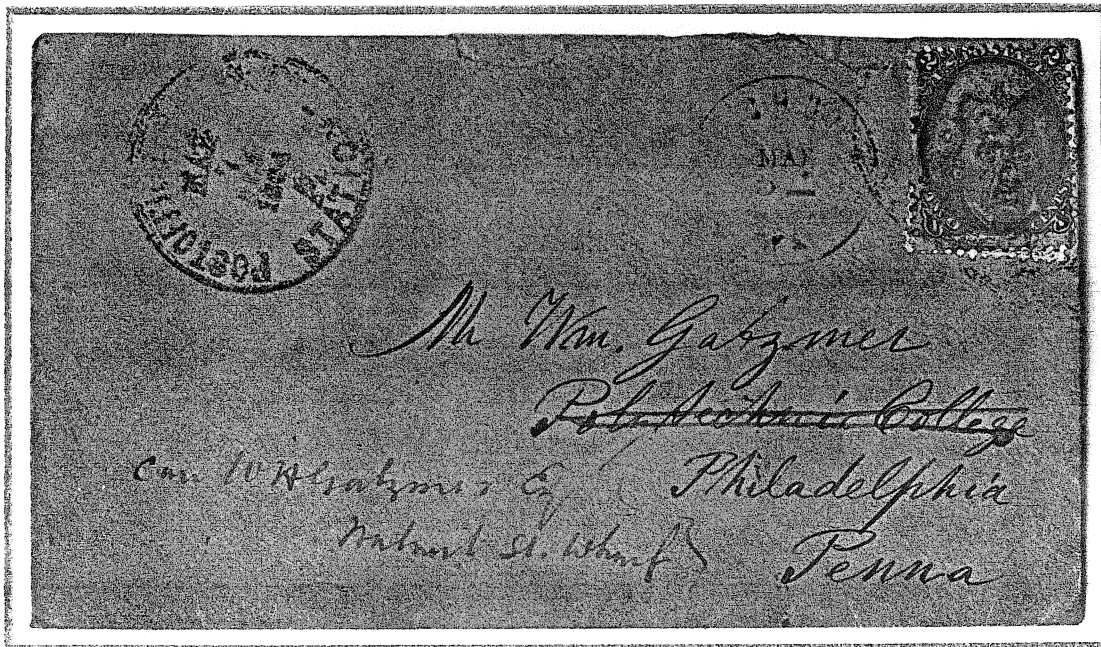 POSTOFFI
STATIO
MAR
MAY
Mr Wm. Gatzmer
Polytechnic College
Philadelphia
Penna
Care W H Gatzmer Esq
Walnut St. Wharf